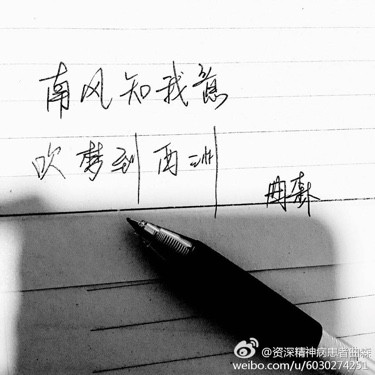 南风知我意
吹梦到西洲
@资深精神病患者
weibo.com/u/6030274251